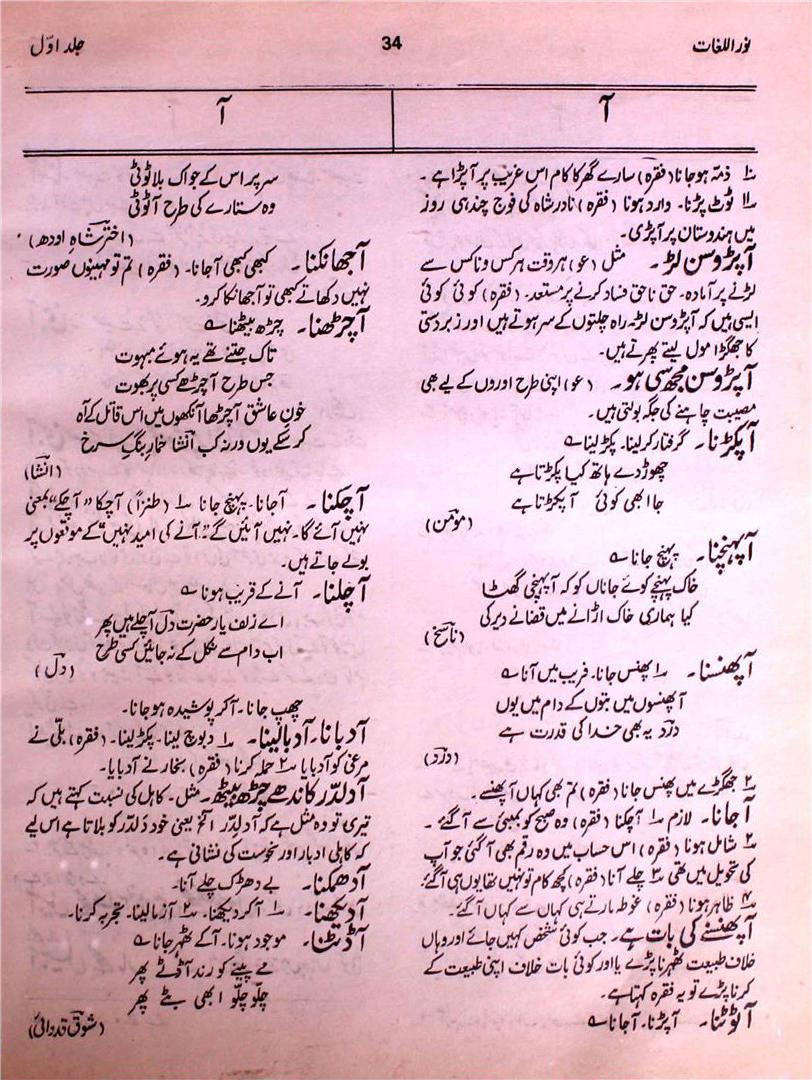 نور اللغات
34
جلد اوّل
آ
آ
۱۰ ذمہ ہوجانا (فقرہ) سارے گھر کا کام اس غریب پر آپڑا ہے۔
۱۱ ٹوٹ پڑنا۔ وارد ہونا (فقرہ) نادر شاہ کی فوج چند ہی روز
میں ہندوستان پر آپڑی۔
آپڑوسن لڑ۔ مثل (عو) ہر وقت ہر کس و ناکس سے
لڑنے پر آمادہ۔ حق ناحق فساد کرنے پر مستعد۔ (فقرہ) کوئی کوئی
ایسی ہیں کہ آپڑوسن لڑ۔ راہ چلتوں کے سر ہوتے ہیں اور زبردستی
کا جھگڑا مول لیتے پھرتے ہیں۔
آپڑوسن مجھ سی ہو۔ (عو) اپنی طرح اوروں کے لیے بھی
مصیبت چاہنے کی جگہ بولتی ہیں۔
آپکڑنا۔ گرفتار کرلینا۔ پکڑ لینا ؎
چھوڑ دے ہاتھ کیا پکڑتا ہے
جا ابھی کوئی آپکڑتا ہے
(مومن)
آپہنچنا۔ پہنچ جانا ؎
خاک پہنچے کوئے جاناں کو کہ آپہنچی گھٹا
کیا ہماری خاک اڑانے میں قضا نے دیر کی
(ناسخ)
آپھنسنا۔ ۱ پھنس جانا۔ فریب میں آنا ؎
آپھنسوں میں بتوں کے دام میں یوں
درد یہ بھی خدا کی قدرت ہے
(درد)
۲ جھگڑے میں پھنس جانا (فقرہ) تم بھی کہاں آپھنسے۔
آجانا۔ لازم ۱ آچکنا (فقرہ) وہ صبح کو بمبئی سے آگئے۔
۲ شامل ہونا (فقرہ) اس حساب میں وہ رقم بھی آگئی جو آپ
کی تحویل میں تھی ۳ چلے آنا (فقرہ) کچھ کام تو نہیں تھا یوں ہی آگئے
۴ ظاہر ہونا (فقرہ) غوطہ مارتے ہی کہاں سے کہاں آگئے۔
آپھنسنے کی بات ہے۔ جب کوئی شخص کہیں جائے اور وہاں
خلاف طبیعت ٹھہرنا پڑے یا اور کوئی بات خلاف اپنی طبیعت کے
کرنا پڑے تو یہ فقرہ کہتا ہے۔
آٹوٹنا۔ آپڑنا۔ آجانا ؎
سر پر اس کے جو اک بلا ٹوٹی
وہ ستارے کی طرح آٹوٹی
(اختر شاہِ اودھ)
آجھانکنا۔ کبھی کبھی آجانا۔ (فقرہ) تم تو مہینوں صورت
نہیں دکھاتے کبھی تو آجھانکا کرو۔
آچڑھنا۔ چڑھ بیٹھنا ؎
تاک جتنے تھے یہ ہوئے مبہوت
جس طرح آچڑھے کسی پر بھوت
خونِ عاشق آچڑھا آنکھوں میں اس قاتل کے آہ
کرسکے یوں ورنہ کب انشا خمارِ بنگ سرخ
(انشا)
آچکنا۔ آجانا۔ پہنچ جانا ۱ (طنزاً) آچکا ”آچکے“ بمعنی
نہیں آئے گا۔ نہیں آئیں گے ”آنے کی امید نہیں“ کے موقعوں پر
بولے جاتے ہیں۔
آچلنا۔ آنے کے قریب ہونا ؎
اے زلف یار حضرت دل آچلے ہیں پھر
اب دام سے نکل کے نہ جائیں کسی طرح
(دل)
چھپ جانا۔ آکر پوشیدہ ہوجانا۔
آدبانا۔ آدبالینا۔ ۱ دبوچ لینا۔ پکڑ لینا۔ (فقرہ) بلّی نے
مرغی کو آدبایا ۲ حملہ کرنا (فقرہ) بخار نے آدبایا۔
آدلدّر کاندھے چڑھ بیٹھ۔ مثل۔ کاہل کی نسبت کہتے ہیں کہ
تیری تو وہ مثل ہے کہ آدلدّر الخ یعنی خود دلدّر کو بلاتا ہے اس لیے
کہ کاہلی ادبار اور نحوست کی نشانی ہے۔
آدھمکنا۔ بے دھڑک چلے آنا۔
آدیکھنا۔ ۱ آکر دیکھنا۔ ۲ آزمالینا۔ تجربہ کرنا۔
آڈٹنا۔ موجود ہونا۔ آکے ٹھہر جانا ؎
مے پینے کو رند آڈٹے پھر
چلّو چلّو ابھی بٹے پھر
(شوق قدوائی)